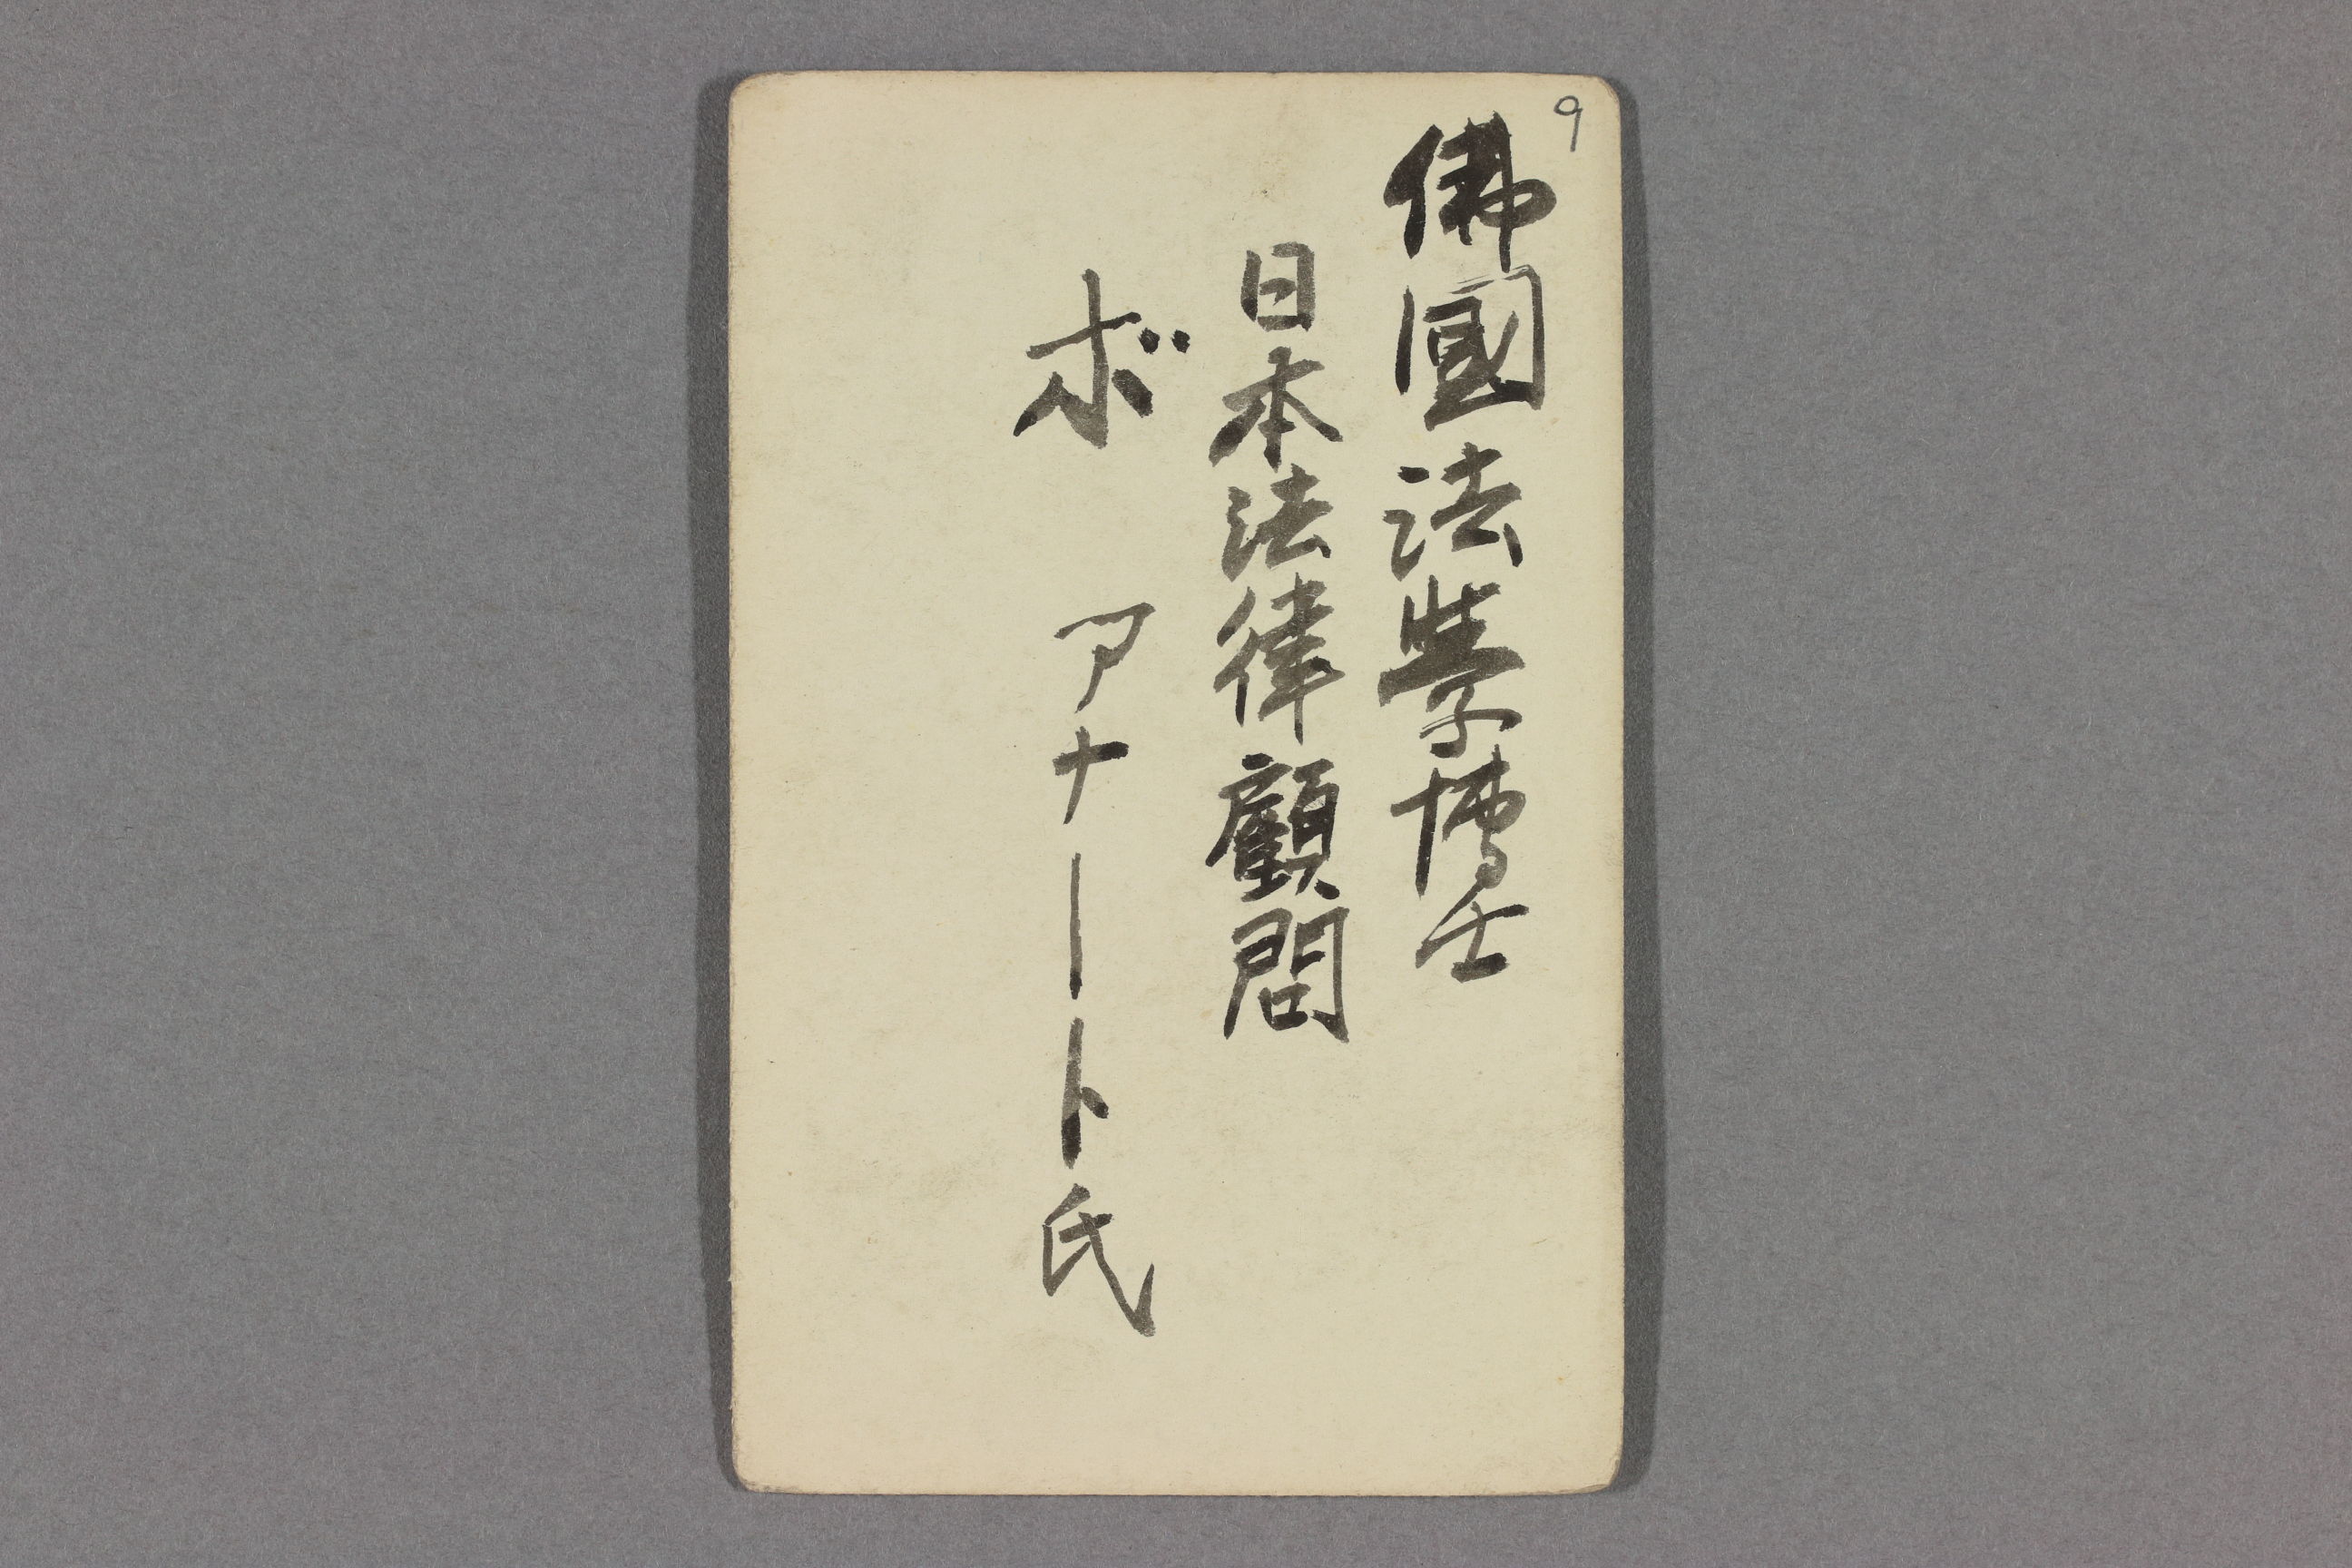 9
佛國法學博士
日本法律顧問
ボアナード氏